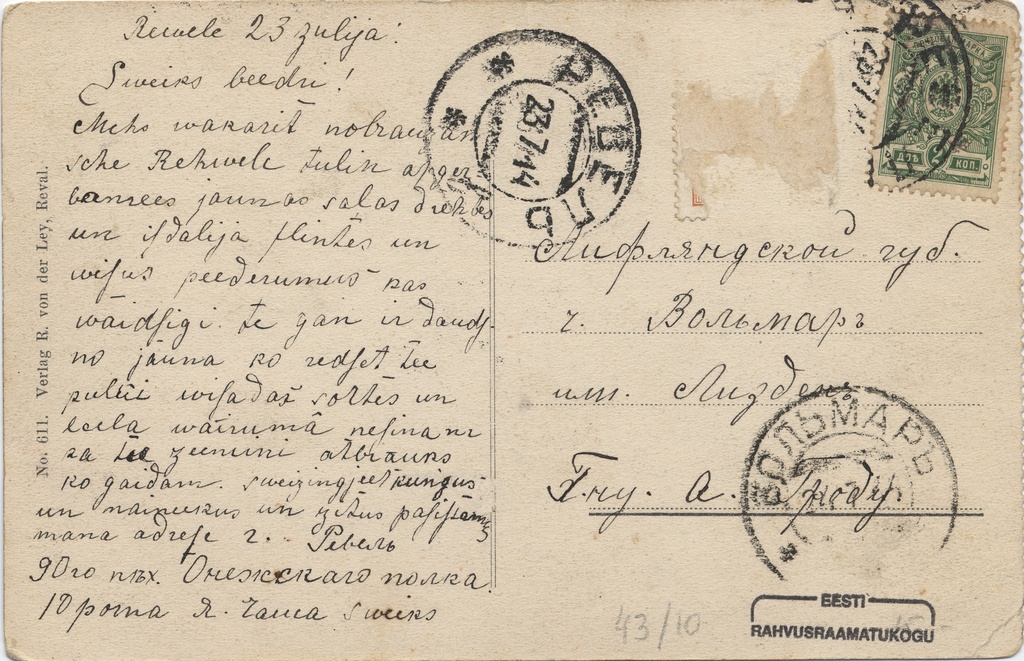 Rewele 23 zulija.
Sweiks beedri!
Mehs wakarit nobrauzam
sche Rehwele tulin apger
banrees jaunas salas drehbes
un isdalija flintes un
wisus peederumus kas
waidsigi. te gan ir daudz
no jauna ko redset tee
pulki wisadas sortes un
leela wairumā nesinam
ka tee zeemini atbrauks
ko gaidam. sweizinajeet kungus
un naineekus un zitus pasistamus
mana adrese г. Ревель
90го пѣх. Онежскаго полка
10 рота Я. Чаша sweiks
No. 611. Verlag R. von der Ley, Reval.
РЕВЕЛЬ
23.7.14
ДВѢ 2 КОП.
Лифляндской губ.
г. Вольмаръ
им. Лизденъ
Г-ну. А.
ВОЛЬМАРЪ
43/10
EESTI
RAHVUSRAAMATUKOGU